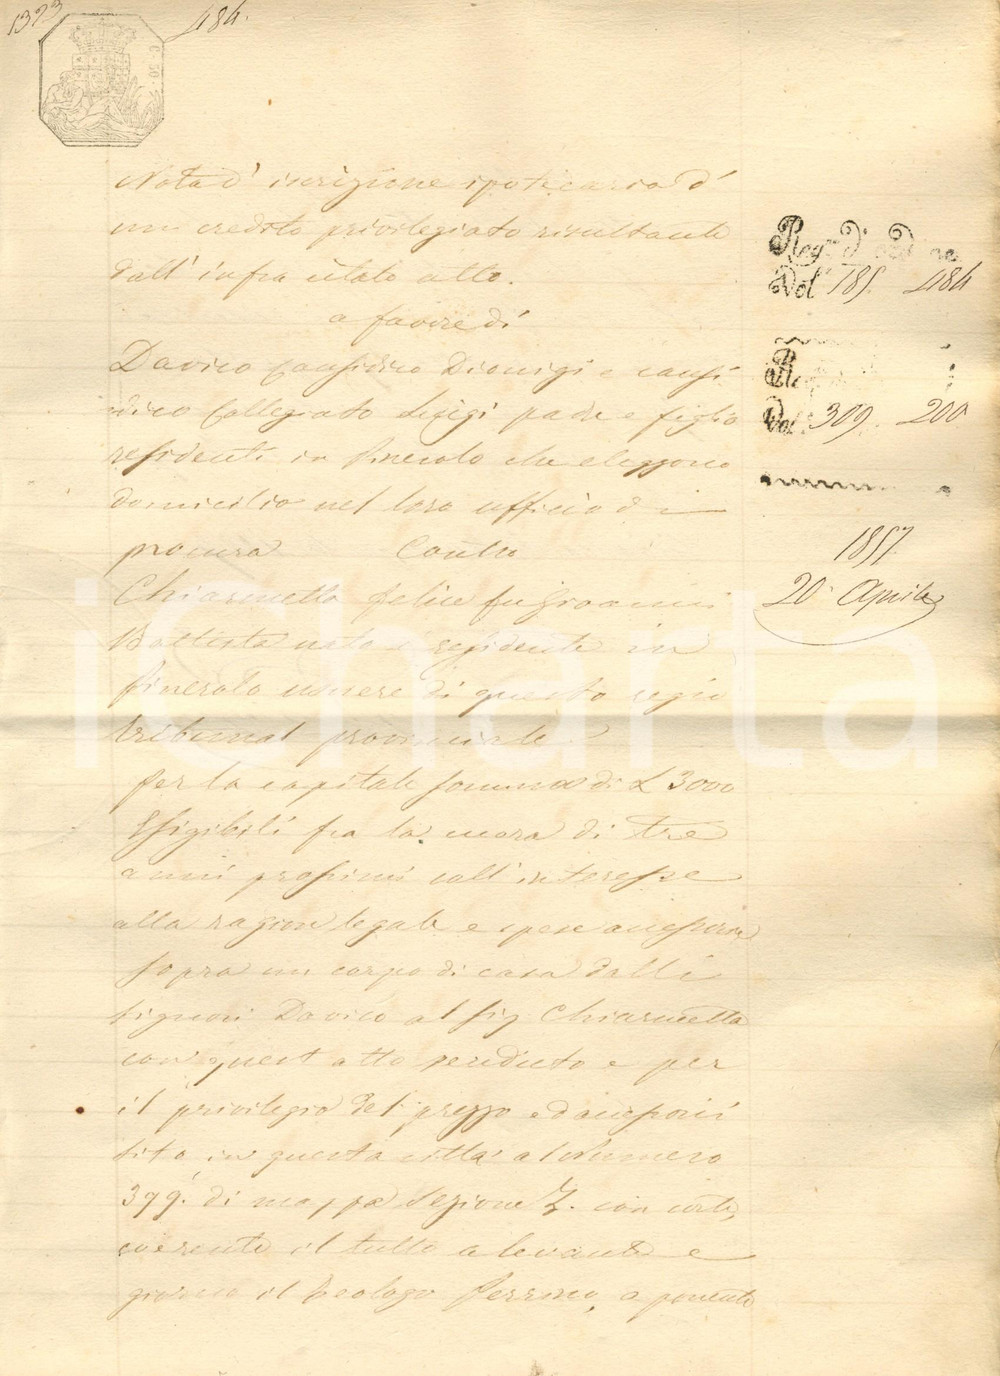 1373
484.
C. 50.
Nota d' inscrizione ipotecaria d'
un credito privilegiato risultante
dall' infra citato atto.
a favore di
Davico Causidico Dionigi e causi
dico Collegiato Luigi padre e figlio
residenti in Pinerolo che eleggono
domicilio nel loro ufficio di
procura Contro
Chiarmetta Felice fu Gioanni
Battista nato e residente in
Pinerolo usciere di questo regio
tribunal provinciale
per la capitale somma di L 3000
Esigibili fra la mora di tre
anni prossimi coll' interesse
alla ragion legale e spese accessorie
sopra un corpo di casa dalli
signori Davico al sig Chiarmetta
con quest atto venduto e per
il privilegio del prezzo ed accessorii
sito in questa città al Numero
399. di mappa Sezione Z. con corte,
coerenti il tutto a levante e
giorno il teologo Perrino, a ponente
Reg. d' ordine
Vol. 185. 484
Vol. 309. 200
1857
20 Aprile
iCharta